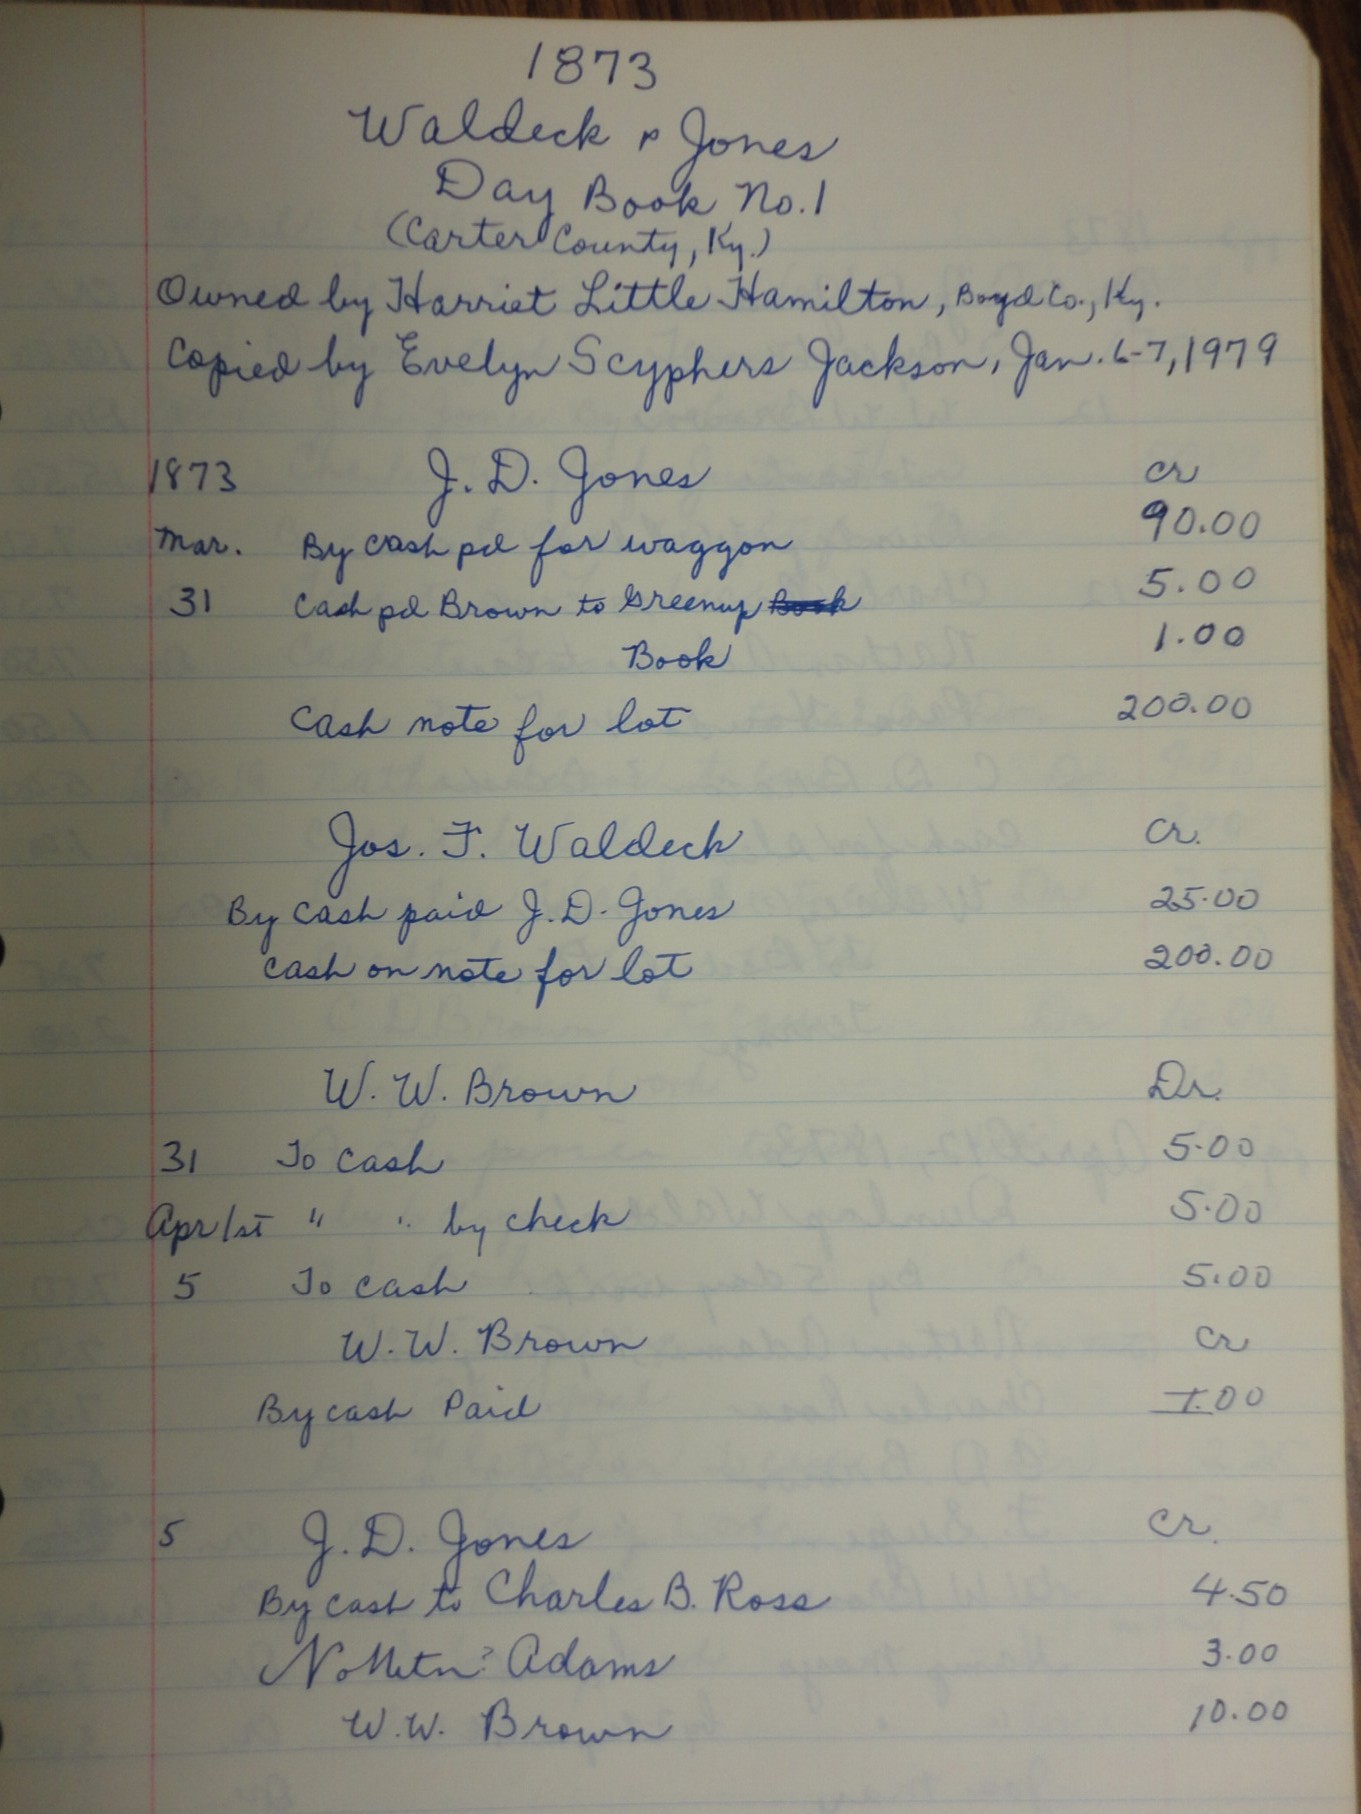 1873
Waldeck & Jones
Day Book No. 1
(Carter County, Ky.)
Owned by Harriet Little Hamilton, Boyd Co., Ky.
Copied by Evelyn Scyphers Jackson, Jan. 6-7, 1979
1873 J. D. Jones cr
Mar. By cash pd for waggon 90.00
31 Cash pd Brown to Greenup Book 5.00
Book 1.00
Cash note for lot 200.00
Jos. F. Waldeck Cr.
By cash paid J. D. Jones 25.00
cash on note for lot 200.00
W. W. Brown Dr.
31 To cash 5.00
Apr 1st " " by check 5.00
5 To cash 5.00
W. W. Brown Cr
By cash Paid 1.00
5 J. D. Jones Cr.
By cash to Charles B. Ross 4.50
Adams 3.00
W. W. Brown 10.00